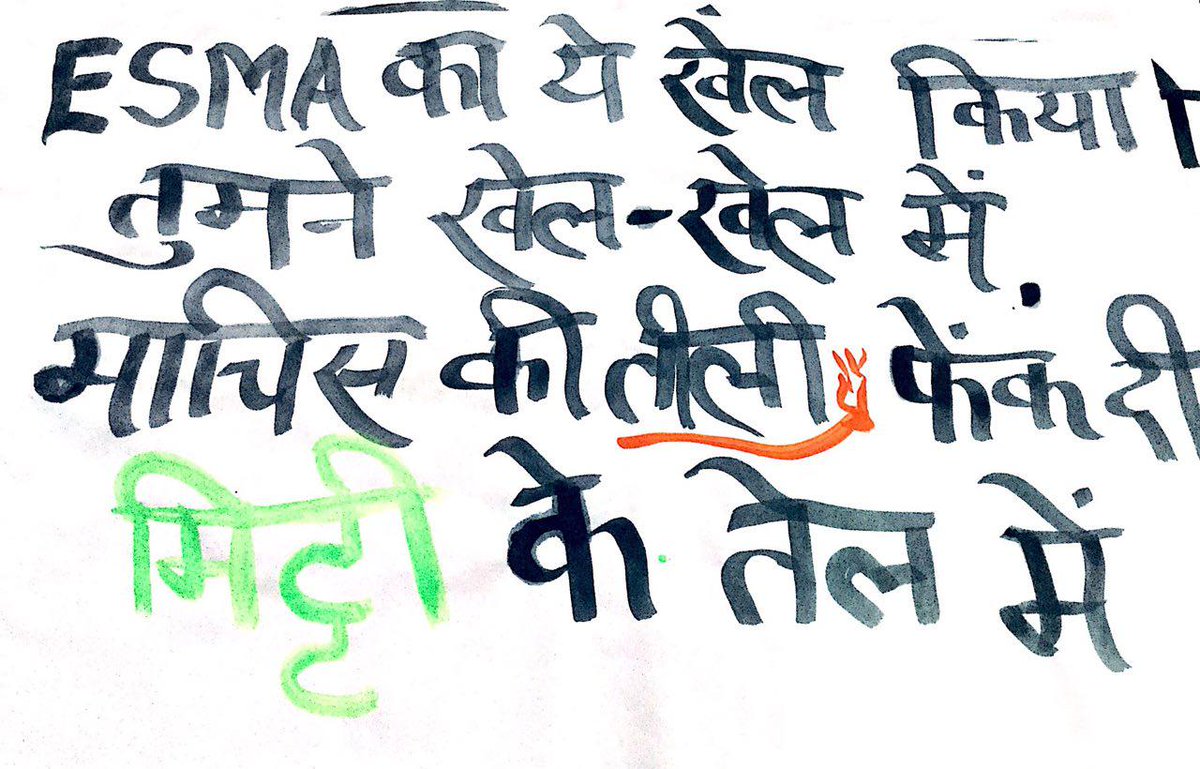 ESMA का ये खेल किया।
तुमने खेल-खेल में
माचिस की तीली फेंक दी
मिट्टी के तेल में